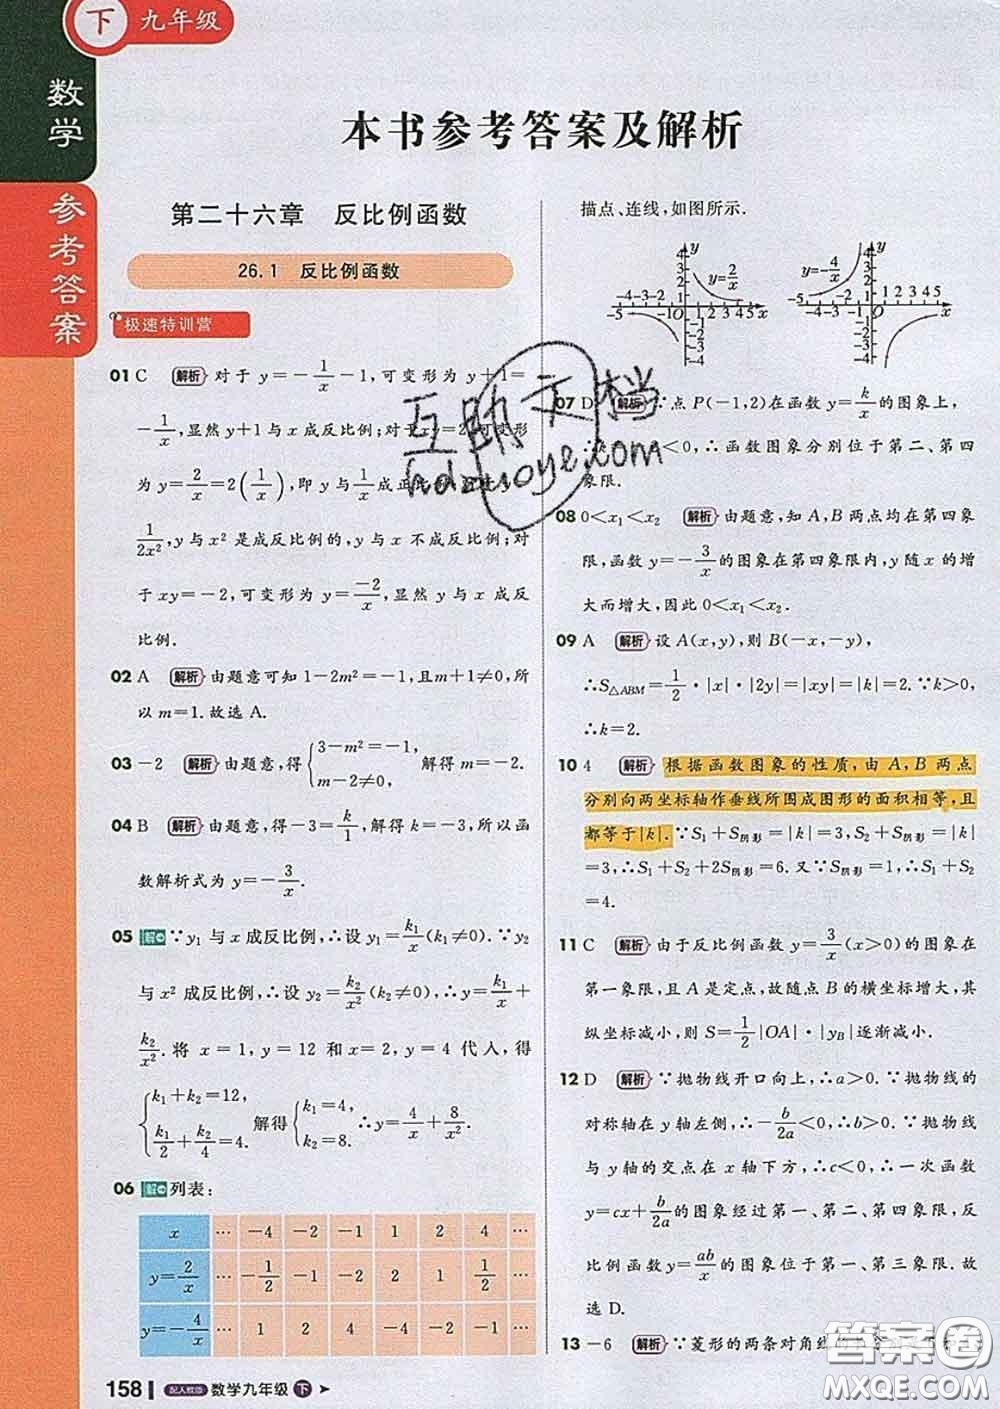 下 九年级
数学
参考答案
本书参考答案及解析
第二十六章 反比例函数
26.1 反比例函数
极速特训营
01 C 解析 对于 y=-1/x-1,可变形为 y+1=
-1/x,显然 y+1 与 x 成反比例;对于 y=2/x,可变形
为 y=2/x=2(1/x),即 y 与 1/x 成正比例;
1/2x²,y 与 x² 是成反比例的,y 与 x 不成反比例;对
于 xy=-2,可变形为 y=-2/x,显然 y 与 x 成反
比例.
02 A 解析 由题意可知 1-2m²=-1,且 m+1≠0,所
以 m=1.故选 A.
03 -2 解析 由题意,得{3-m²=-1, m-2≠0, 解得 m=-2.
04 B 解析 由题意,得-3=k/1,解得 k=-3,所以函
数解析式为 y=-3/x.
05 解 ∵y₁ 与 x 成反比例,∴设 y₁=k₁/x(k₁≠0).∵y₂
与 x² 成反比例,∴设 y₂=k₂/x²(k₂≠0),∴y=k₁/x+
k₂/x².将 x=1,y=12 和 x=2,y=4 代入,得
{k₁+k₂=12, k₁/2+k₂/4=4. 解得{k₁=4, k₂=8. ∴y=4/x+8/x².
06 解 列表:
x … -4 -2 -1 1 2 4 …
y=2/x … -1/2 -1 -2 2 1 1/2 …
y=-4/x … 1 2 4 -4 -2 -1 …
158 配人教版 数学九年级 下
描点、连线,如图所示.
y 4 3 2 1 y=2/x -5-4-3-2-1 O 1 2 3 4 5 x -1 -2 -3 -4
y=-4/x y 4 3 2 1 -5-4-3-2-1 O 1 2 3 4 5 x -1 -2 -3 -4
07 D 解析 ∵点 P(-1,2)在函数 y=k/x 的图象上,
<0,∴函数图象分别位于第二、第四
象限.
08 0<x₁<x₂ 解析 由题意,知 A,B 两点均在第四象
限,函数 y=-3/x 的图象在第四象限内,y 随 x 的增
大而增大,因此 0<x₁<x₂.
09 A 解析 设 A(x,y),则 B(-x,-y),
∴S△ABM=1/2·|x|·|2y|=|xy|=|k|=2.∵k>0,
∴k=2.
10 4 解析 根据函数图象的性质,由 A,B 两点
分别向两坐标轴作垂线所围成图形的面积相等,且
都等于|k|.∵S₁+S阴影=|k|=3,S₂+S阴影=|k|
=3,∴S₁+S₂+2S阴影=6.又∵S阴影=1,∴S₁+S₂
=4.
11 C 解析 由于反比例函数 y=3/x(x>0)的图象在
第一象限,且 A 是定点,故随点 B 的横坐标增大,其
纵坐标减小,则 S=1/2|OA|·|yB|逐渐减小.
12 D 解析 ∵抛物线开口向上,∴a>0.∵抛物线的
对称轴在 y 轴左侧,∴-b/2a<0,∴b>0.∵抛物线
与 y 轴的交点在 x 轴下方,∴c<0,∴一次函数
y=cx+b/2a 的图象经过第一、第二、第四象限,反
比例函数 y=ab/x 的图象位于第一、第三象限.故
选 D.
13 -6 解析 ∵菱形的两条对角线
互助文档
hdzuoye.com
答案圈
MXQE.COM